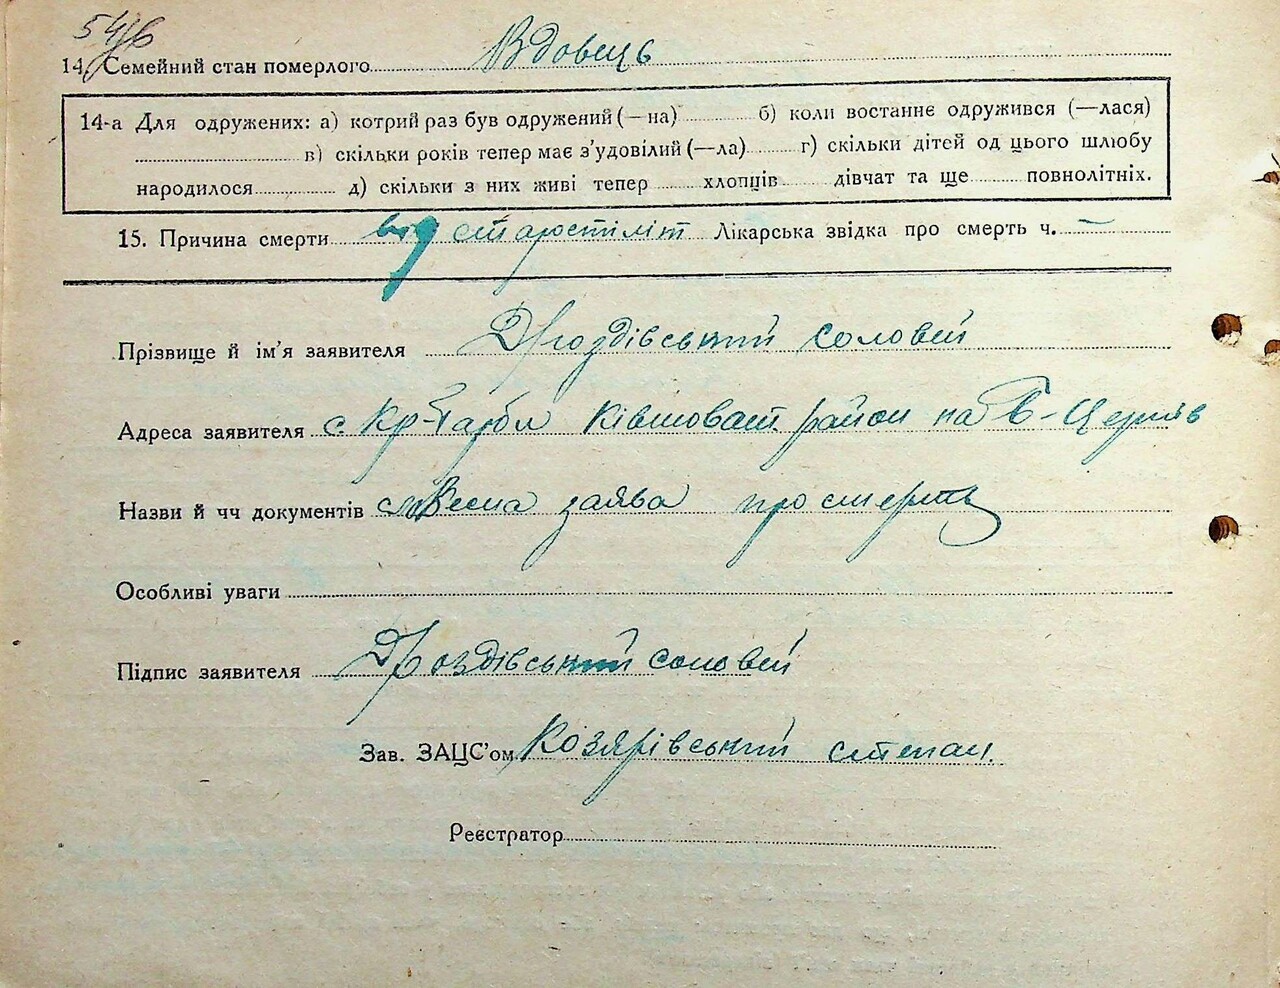 54/в
14. Семейний стан померлого Вдовець
14-а Для одружених: а) котрий раз був одружений (—на) б) коли востаннє одружився (—лася)
в) скільки років тепер має з'удовілий (—ла) г) скільки дітей од цього шлюбу
народилося д) скільки з них живі тепер хлопців дівчат та ще повнолітніх.
15. Причина смерти від старости літ Лікарська звідка про смерть ч. —
Прізвище й ім'я заявителя Дроздівський Соловей
Адреса заявителя с. Кр- Ківшоват. район на Б-Церків
Назви й чч документів словесна заява про смерть
Особливі уваги
Підпис заявителя Дроздівський Соловей
Зав. ЗАЦС'ом Козярівський степан.
Реєстратор